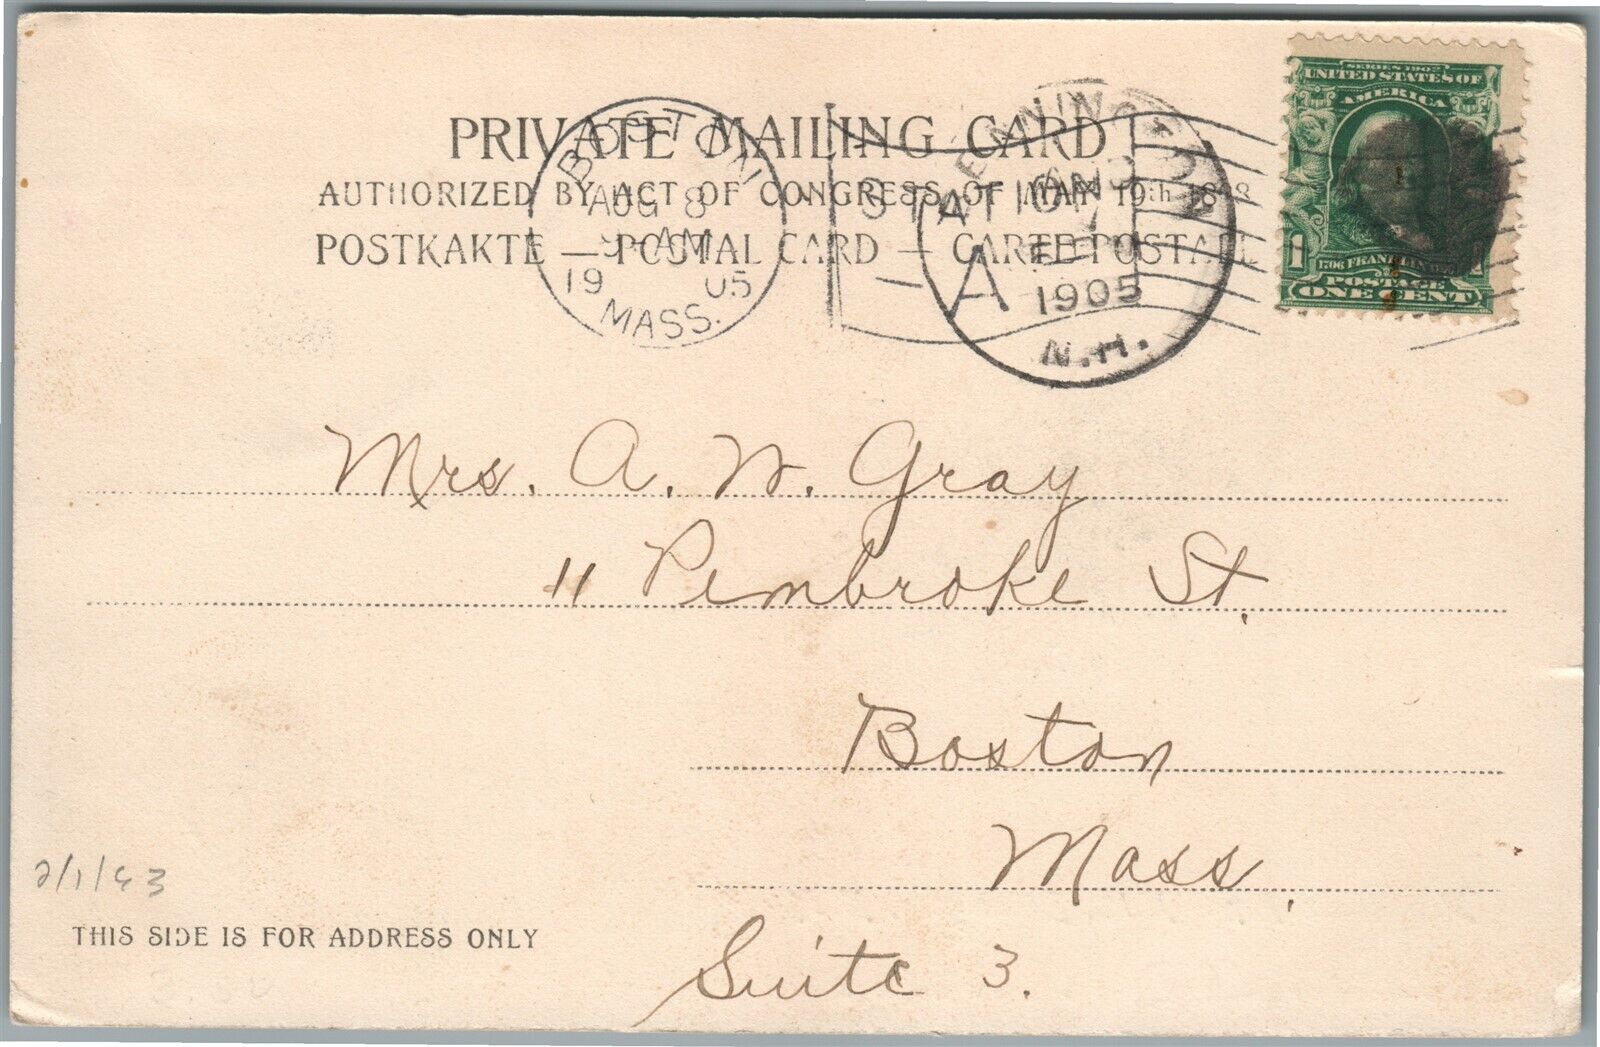 PRIVATE MAILING CARD
AUTHORIZED BY ACT OF CONGRESS OF MAY 19th 1898
POSTKAKTE — POSTAL CARD — CARTE POSTALE
BOSTON
AUG 8
AM
1905
MASS.
STATION
A
1905
N.H.
SERIES 1902
UNITED STATES OF
AMERICA
1706 FRANKLIN
POSTAGE
ONE CENT
1
Mrs. A. W. Gray
11 Pembroke St.
Boston
Mass.
Suite 3.
2/1/93
THIS SIDE IS FOR ADDRESS ONLY